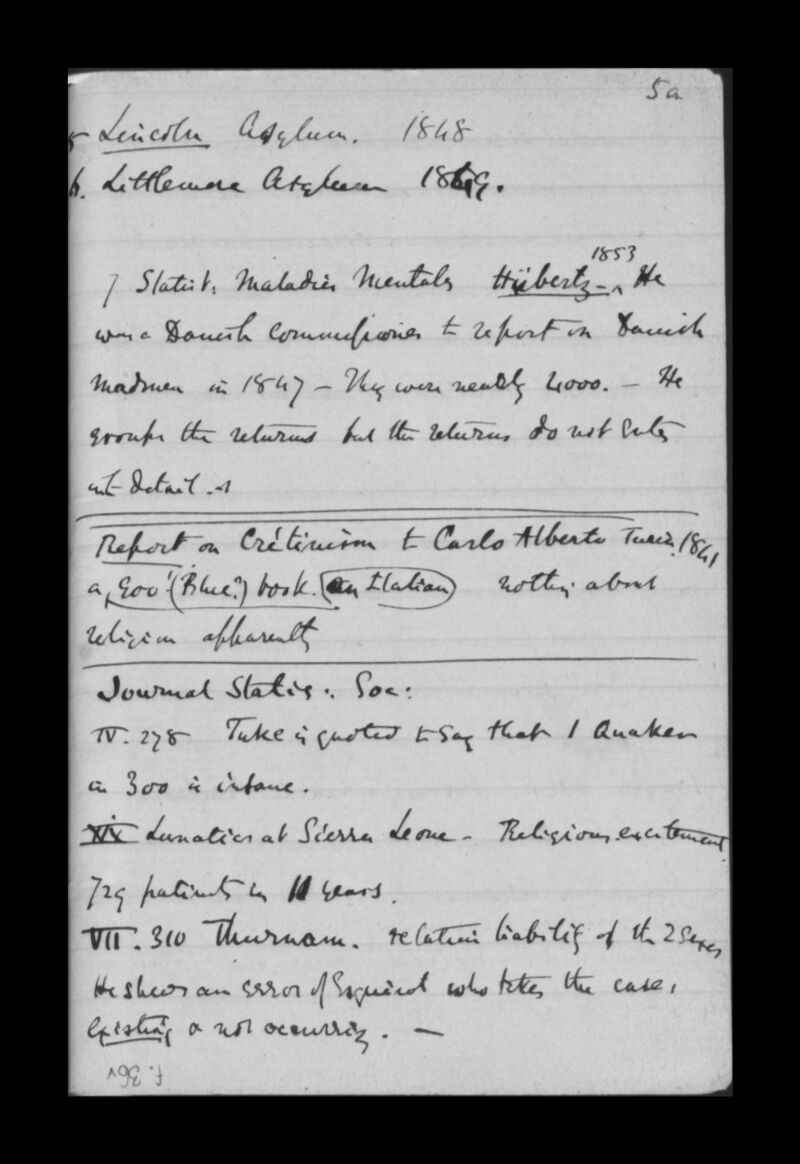 5a
5 Lincoln Asylum. 1848
6. Littlemore Asylum 1849.
7 Statist: Maladies Mentales Hübertz - 1853 He
was a Danish Commissioner to report on Danish
Madmen in 1847 - They were nearly 4000. - He
groups the returns but the returns do not enter
into detail. -
Report on Crétinism to Carlo Alberto Turin. 1841
a Gov! (Blue?) book. in Italian nothing about
religion apparently
Journal Statis: Soc:
IV. 278 Tuke is quoted to say that 1 Quaker
in 300 is insane.
XIX Lunatics at Sierra Leone - Religious excitement
729 patients in 11 years.
VII. 310 Thurnam. relative liability of the 2 sexes
He shews an error of Esquirol who takes the cases
existing & not occurring. -
f. 36v